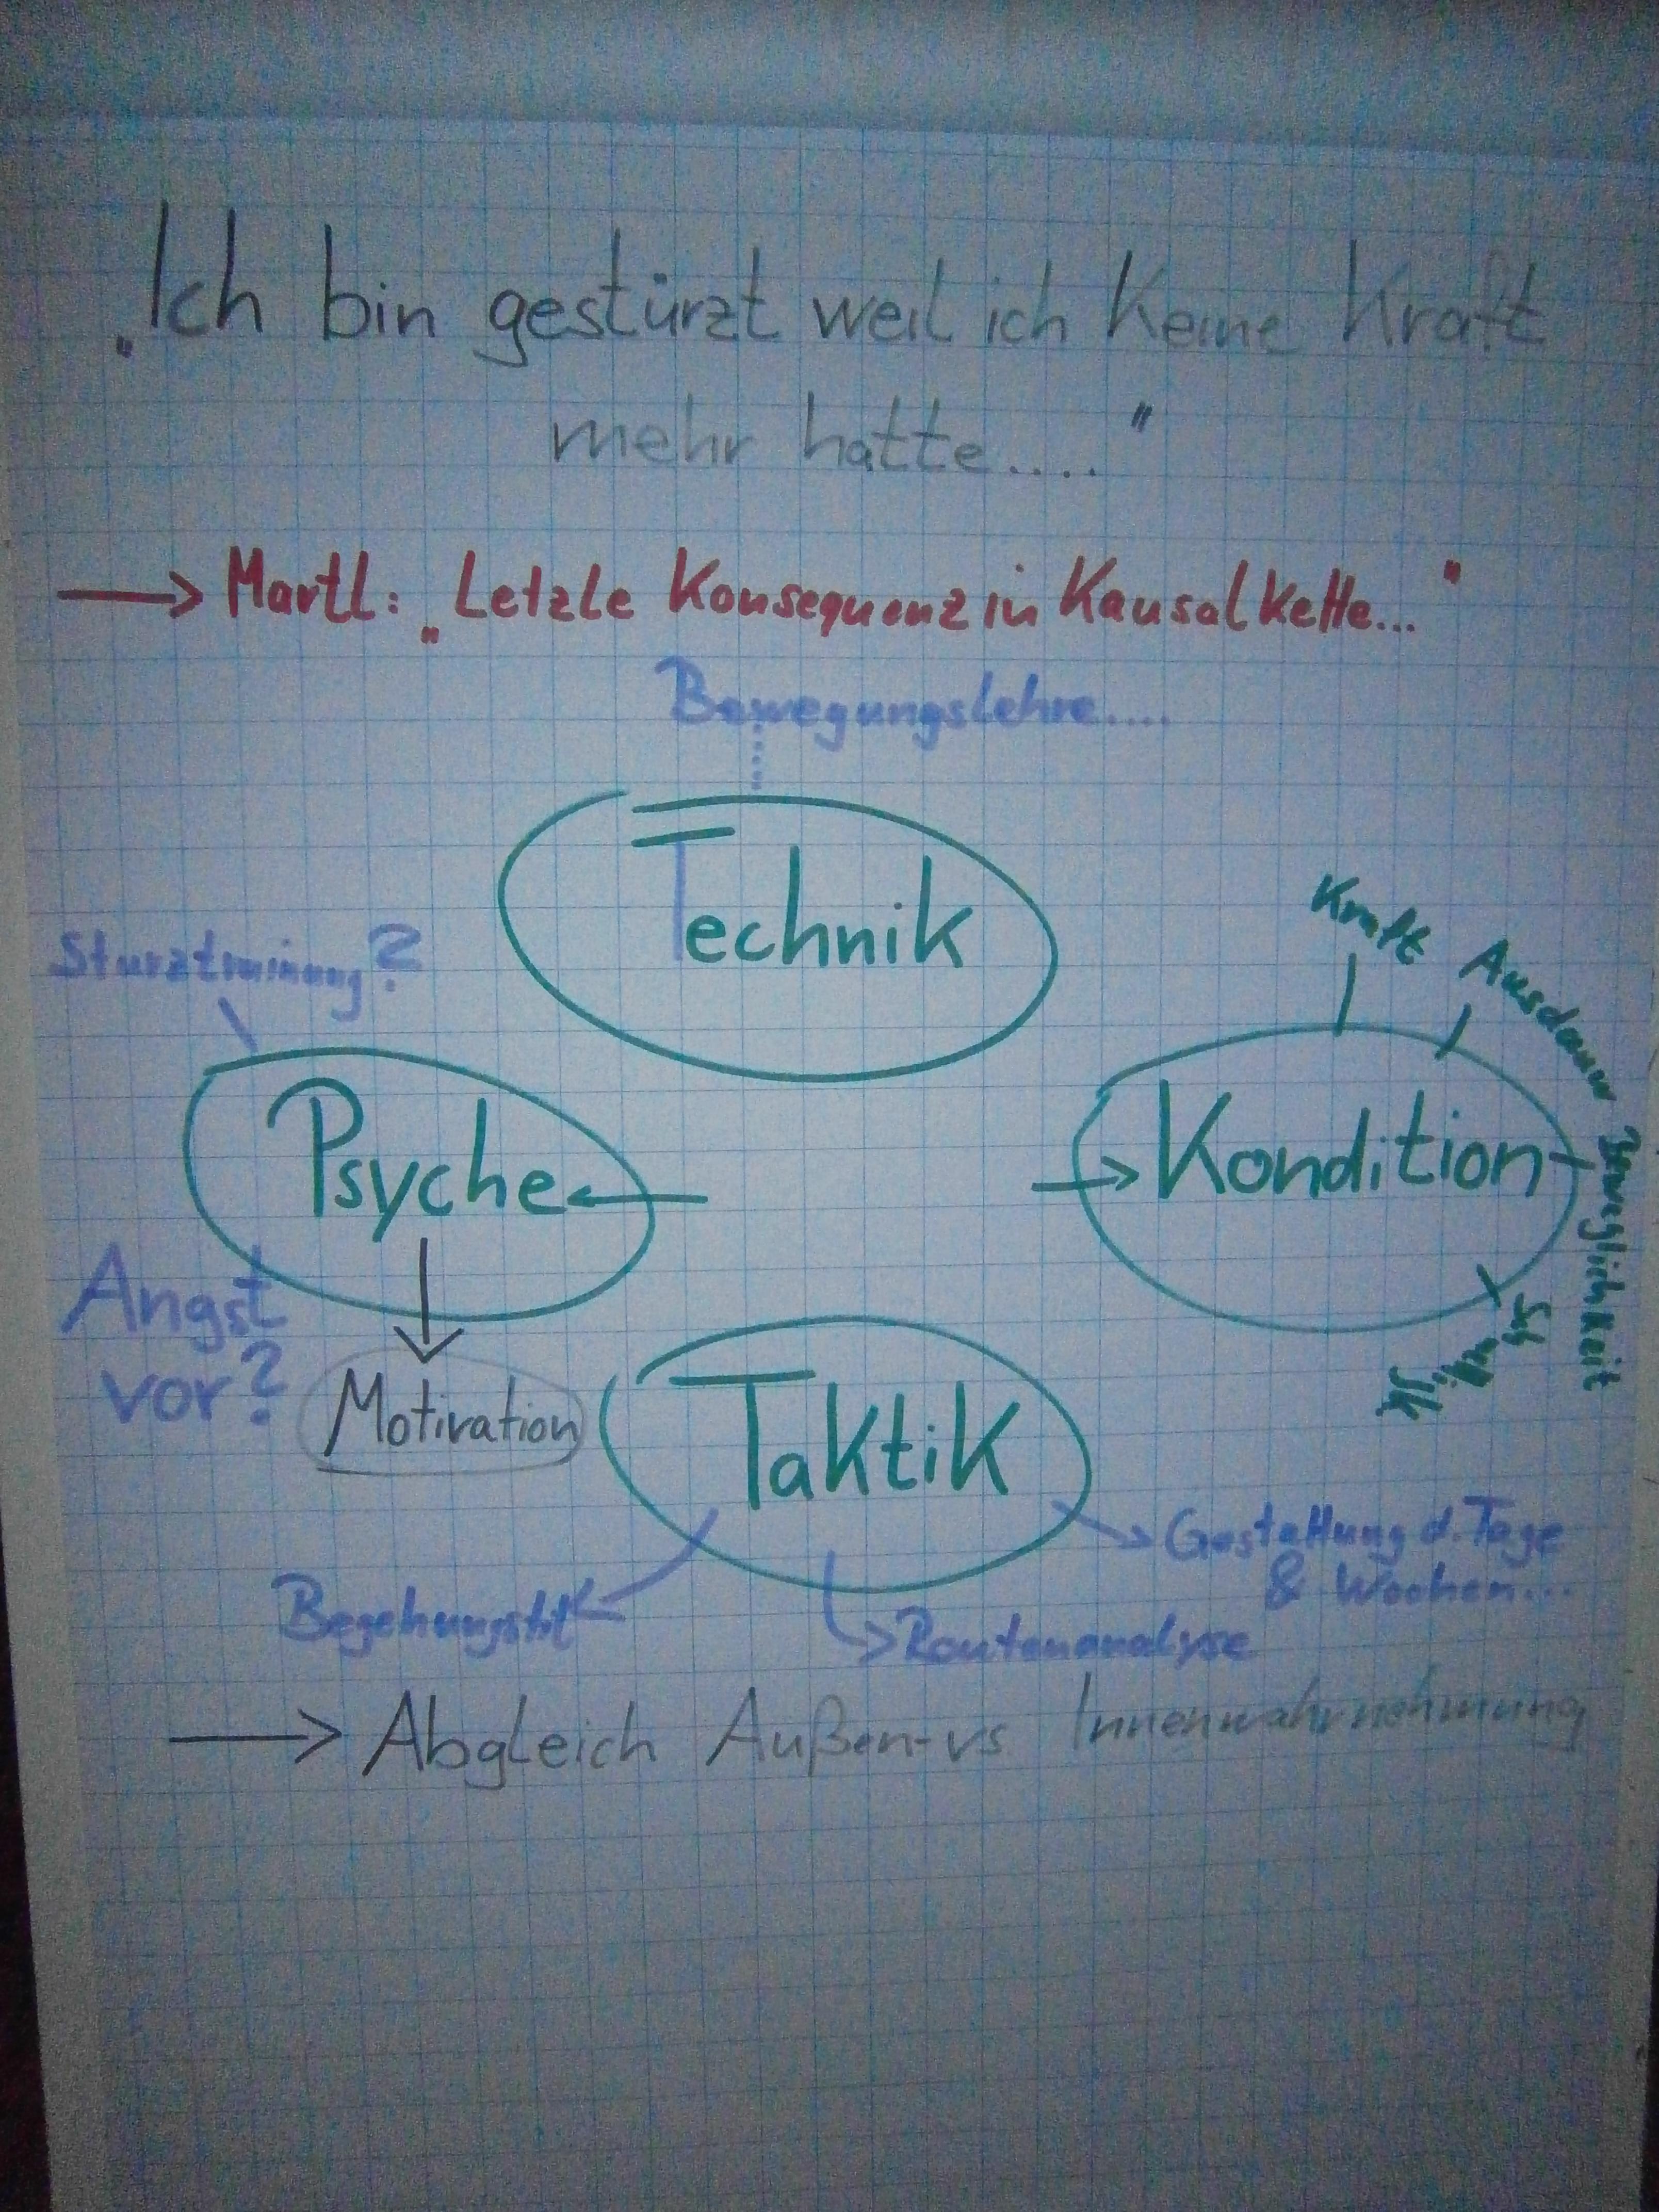 „Ich bin gestürzt weil ich keine Kraft
mehr hatte....."
→ Martl: „Letzte Konsequenz in Kausalkette..."
Bewegungslehre....
Technik
Kraft
Ausdauer
Beweglichkeit
Sturztraining?
Psyche
Kondition
Angst
vor?
Motivation
Taktik
Gestaltung d. Tage
& Wochen...
Routenanalyse
→ Abgleich Außen- vs Innenwahrnehmung